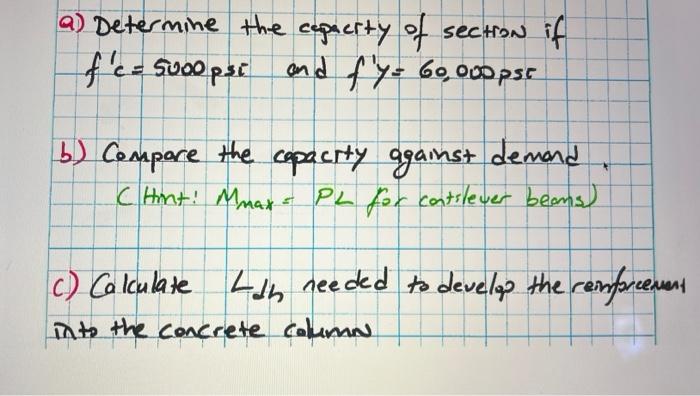 a) Determine the capacity of section if
f'c = 5000 psi and f'y = 60,000 psi
b) Compare the capacity against demand.
(Hint: Mmax = PL for cantilever beams)
c) Calculate Ldh needed to develop the reinforcement
into the concrete column